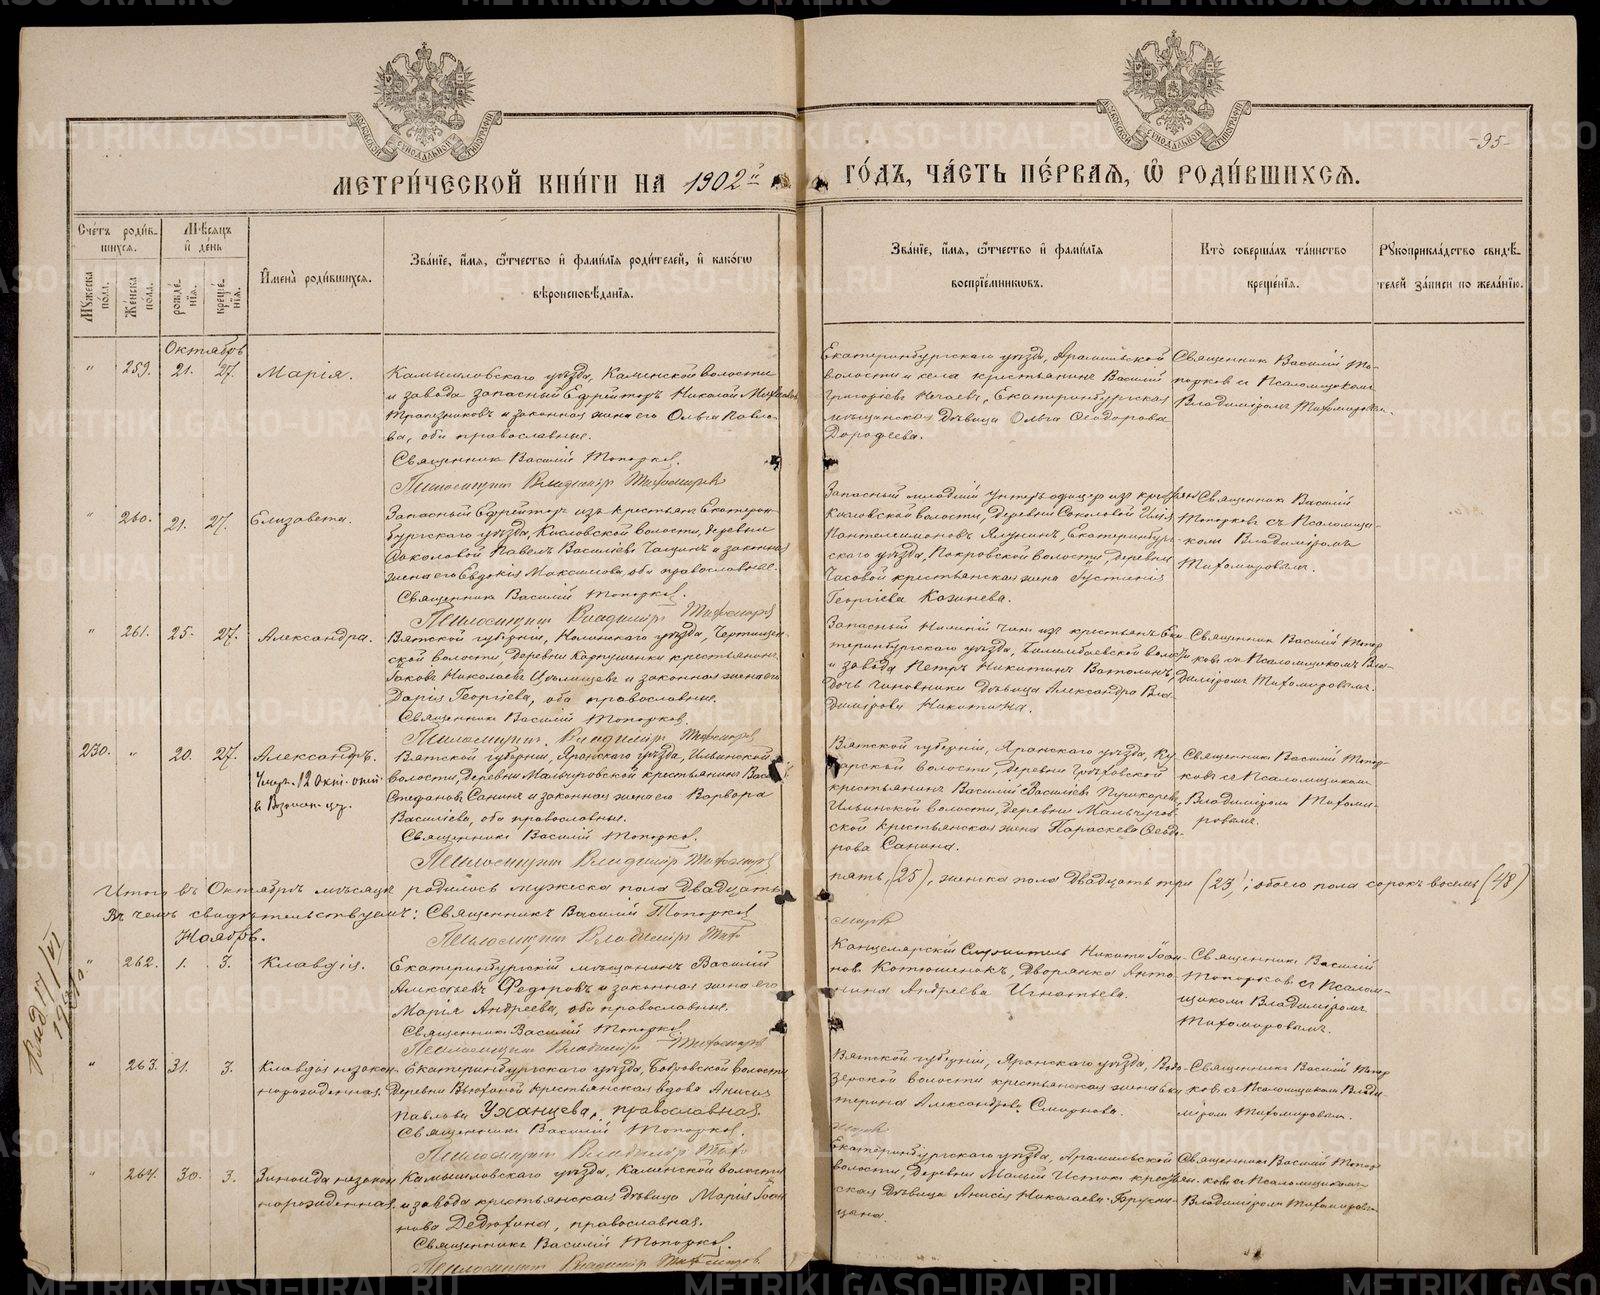 МЕТРИ́ЧЕСКОЙ КНИ́ГИ НА 1902й
ГО́ДЪ, ЧА́СТЬ ПЕ́РВАѦ, Ѽ РОДИ́ВШИХСѦ.
-95-
Сче́тъ роди́в-
шихся.
Мѣ́сяцъ
и де́нь
Му́жеска пола.
Же́нска пола.
рожде́нїя.
креще́нїя.
Имена̀ роди́вшихся.
Зва́нїе, и́мя, ѻ҆́тчество и фами́лїя роди́телей, и како́гѡ
вѣроисповѣ́данїя.
Зва́нїе, и́мя, ѻ҆́тчество и фами́лїя
воспрїе́мниковъ.
Кто̀ соверша́лъ та́инство
креще́нїя.
Рꙋкоприкла́дство свидѣ́-
телей за́писи по жела́нїю.
Октябрь
" 259. 21. 27. Марія.
Камышловскаго уѣзда, Каменской волости
и завода запасный Ефрейторъ Николай
Трапезниковъ и законная жена его Ольга Павло-
ва, оба православные.
Священникъ Василій Топорковъ.
Псаломщикъ Владиміръ Тихомировъ
Екатеринбургскаго уѣзда, Арамильской
волости и села крестьянинъ Василій
Григорьевъ Нечаевъ, Екатеринбургская
мѣщанская дѣвица Ольга Ѳеодорова
Дорофеева.
Священникъ Василій То-
порковъ съ Псаломщикомъ
Владиміромъ Тихомировымъ.
" 260. 21. 27. Елизавета.
Запасный Ефрейторъ изъ крестьянъ Екатерин-
бургскаго уѣзда, Кисловской волости, деревни
Соколовой Павелъ Василіевъ и законная
жена его Евдокія Максимова, оба православные.
Священникъ Василій Топорковъ.
Псаломщикъ Владиміръ Тихомировъ
Запасный младшій унтеръ-офицеръ изъ крестьянъ
Кисловской волости, деревни Соколовой Илія
Пантелеимоновъ Ялунинъ, Екатеринбург-
скаго уѣзда, Покровской волости, деревни
Часовой крестьянская жена Іустинія
Георгіева Казинева.
Священникъ Василій
Топорковъ съ Псаломщи-
комъ Владиміромъ
Тихомировымъ.
" 261. 25. 27. Александра.
Вятской губерніи, Нолинскаго уѣзда,
ской волости, деревни крестьянинъ
Іаковъ Николаевъ и законная жена его
Дарія Георгіева, оба православные.
Священникъ Василій Топорковъ.
Псаломщикъ Владиміръ Тихомировъ
Запасный Нижній Чинъ изъ крестьянъ Ека-
теринбургскаго уѣзда, Билимбаевской волости
и завода Петръ Никитинъ Ватолинъ,
дочь чиновника дѣвица Александра Вла-
димірова Никитина.
Священникъ Василій Топор-
ковъ съ Псаломщикомъ Вла-
диміромъ Тихомировымъ.
230. " 20. 27. Александръ.
Вятской губерніи, Яранскаго уѣзда, Ильинской
волости, деревни Мальчуровской крестьянинъ
Стефановъ Санинъ и законная жена его Варвара
Василіева, оба православные.
Священникъ Василій Топорковъ.
Псаломщикъ Владиміръ Тихомировъ
Вятской губерніи, Яранскаго уѣзда,
волости, деревни
крестьянинъ Василій Василіевъ Пушкаревъ,
Ильинской волости, деревни Мальчуров-
ской крестьянская жена Параскева Ѳеодо-
рова Санина.
Священникъ Василій Топор-
ковъ съ Псаломщикомъ
Владиміромъ Тихоми-
ровымъ.
Итого въ Октябрѣ мѣсяцѣ родилось мужеска пола двадцать
пять, (25), женска пола двадцать три (23); обоего пола сорокъ восемь (48)
Въ чемъ свидѣтельствуемъ: Священникъ Василій Топорковъ
Псаломщикъ Владиміръ
Ноябрь.
" 262. 1. 3. Клавдія.
Екатеринбургскій мѣщанинъ Василій
Алексѣевъ Федоровъ и законная жена его
Марія Андреева, оба православные.
Священникъ Василій Топорковъ.
Псаломщикъ Владиміръ Тихомировъ
Канцелярскій Служитель Никита Іоан-
новъ Котюшенокъ, Дворянка Анто-
нина Андреева Игнатьева.
Священникъ Василій
Топорковъ съ Псалом-
щикомъ Владиміромъ
Тихомировымъ.
" 263. 31. 3. Клавдія незакон-
норожденная.
Екатеринбургскаго уѣзда, Бобровской волости
деревни крестьянская вдова Анисія
Павлова Уханцева, православная.
Священникъ Василій Топорковъ.
Псаломщикъ Владиміръ
Вятской губерніи, Яранскаго уѣзда,
волости крестьянская жена Ека-
терина Александрова Смирнова.
Священникъ Василій Топор-
ковъ съ Псаломщикомъ Влади-
міромъ Тихомировымъ.
" 264. 30. 3. Зинаида незакон-
норожденная.
Камышловскаго уѣзда, Каменской волости
и завода крестьянская дѣвица Марія Іоан-
нова Дедюхина, православная.
Священникъ Василій Топорковъ.
Псаломщикъ Владиміръ Тихомировъ.
Екатеринбургскаго уѣзда, Арамильской
волости, деревни Малый Истокъ крестьян-
ская дѣвица Анисія Николаева Брусни-
цина.
Священникъ Василій Топор-
ковъ съ Псаломщикомъ
Владиміромъ Тихомировымъ.
METRIKI.GASO-URAL.RU